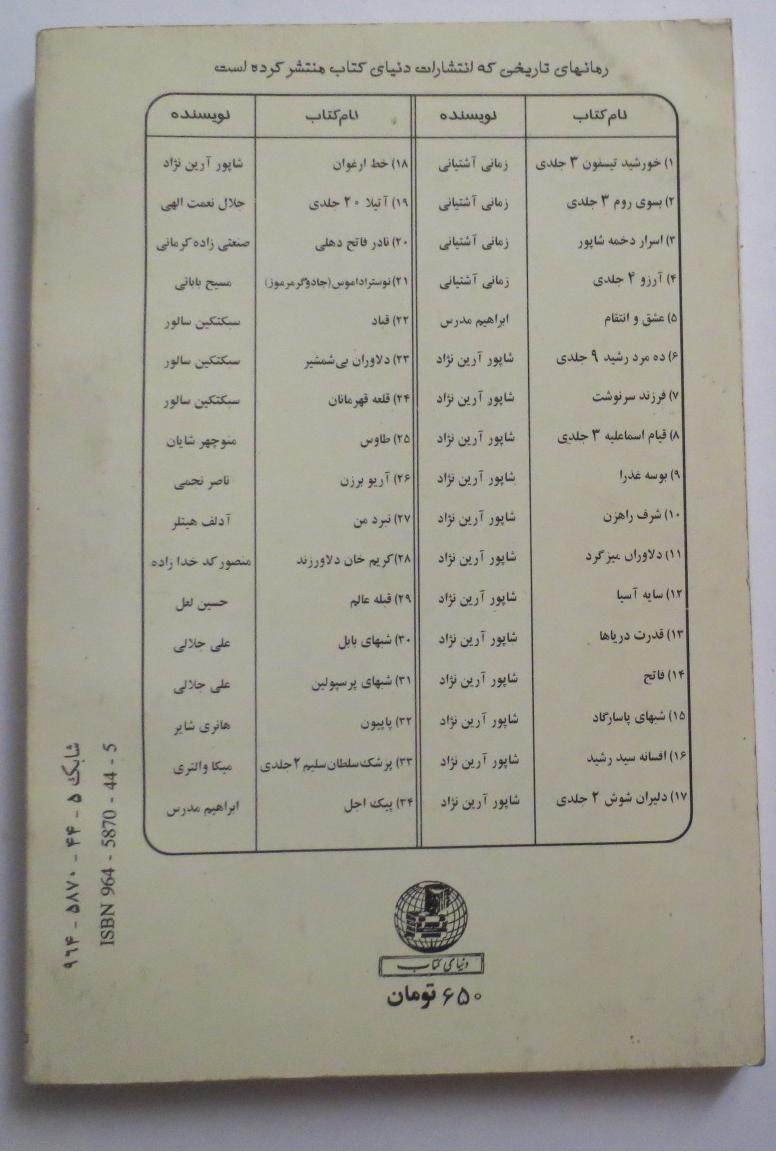 رمانهای تاریخی که انتشارات دنیای کتاب منتشر کرده است
نام کتاب نویسنده نام کتاب نویسنده
۱) خورشید تیسفون ۳ جلدی زمانی آشتیانی ۱۸) خط ارغوان شاپور آرین نژاد
۲) بسوی روم ۳ جلدی زمانی آشتیانی ۱۹) آتیلا ۲۰ جلدی جلال نعمت الهی
۳) اسرار دخمه شاپور زمانی آشتیانی ۲۰) نادر فاتح دهلی صنعتی زاده کرمانی
۴) آرزو ۴ جلدی زمانی آشتیانی ۲۱) نوستراداموس (جادوگر مرموز) مسیح بابائی
۵) عشق و انتقام ابراهیم مدرس ۲۲) قباد سبکتکین سالور
۶) ده مرد رشید ۹ جلدی شاپور آرین نژاد ۲۳) دلاوران بی‌شمشیر سبکتکین سالور
۷) فرزند سرنوشت شاپور آرین نژاد ۲۴) قلعه قهرمانان سبکتکین سالور
۸) قیام اسماعلیه ۳ جلدی شاپور آرین نژاد ۲۵) طاوس منوچهر شایان
۹) بوسه غذرا شاپور آرین نژاد ۲۶) آریو برزن ناصر نجمی
۱۰) شرف راهزن شاپور آرین نژاد ۲۷) نبرد من آدلف هیتلر
۱۱) دلاوران میزگرد شاپور آرین نژاد ۲۸) کریم خان دلاورزند منصور کد خدا زاده
۱۲) سایه آسیا شاپور آرین نژاد ۲۹) قبله عالم حسین لعل
۱۳) قدرت دریاها شاپور آرین نژاد ۳۰) شبهای بابل علی جلالی
۱۴) فاتح شاپور آرین نژاد ۳۱) شبهای پرسپولین علی جلالی
۱۵) شبهای پاسارگاد شاپور آرین نژاد ۳۲) پاپیون هانری شایر
۱۶) افسانه سید رشید شاپور آرین نژاد ۳۳) پزشک سلطان سلیم ۲ جلدی میکا والتری
۱۷) دلیران شوش ۲ جلدی شاپور آرین نژاد ۳۴) پیک اجل ابراهیم مدرس
شابک ۵ - ۴۴ - ۵۸۷۰ - ۹۶۴
ISBN 964 - 5870 - 44 - 5
دنیای کتاب
۶۵۰ تومان